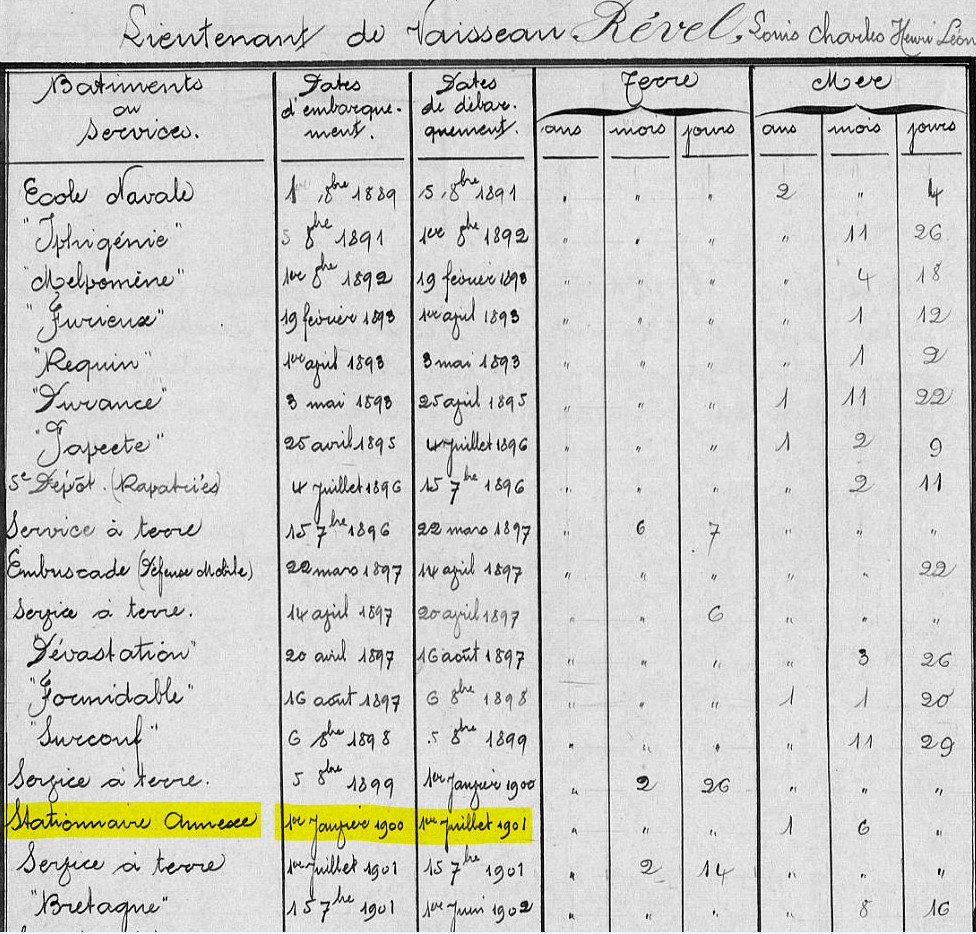 Lieutenant de Vaisseau Rével, Louis Charles Henri Léon
Batiments ou services. Dates d'embarque-ment. Dates de débar-quement. Terre Mer
ans mois jours ans mois jours
Ecole Navale 1er 8bre 1889 5. 8bre 1891 " " " 2 " 4
"Iphigénie" 5 8bre 1891 1er 8bre 1892 " " " " 11 26
"Melpomène" 1er 8bre 1892 19 février 1893 " " " " 4 18
"Furieux" 19 février 1893 1er avril 1893 " " " " 1 12
"Requin" 1er avril 1893 3 mai 1893 " " " " 1 2
"Durance" 3 mai 1893 25 avril 1895 " " " 1 11 22
"Papeete" 25 avril 1895 4 juillet 1896 " " " 1 2 9
5e Dépôt. (Rapatriés) 4 juillet 1896 15 7bre 1896 " " " " 2 11
Service à terre 15 7bre 1896 22 mars 1897 " 6 7 " " "
Embuscade (Défense Mobile) 22 mars 1897 14 avril 1897 " " " " " 22
Service à terre. 14 avril 1897 20 avril 1897 " " 6 " " "
"Dévastation" 20 avril 1897 16 août 1897 " " " " 3 26
"Formidable" 16 août 1897 6 8bre 1898 " " " 1 1 20
"Surcouf" 6 8bre 1898 5 8bre 1899 " " " " 11 29
Service à terre. 5 8bre 1899 1er Janvier 1900 " 2 26 " " "
Stationnaire Annexe 1er Janvier 1900 1er Juillet 1901 " " " 1 6 "
Service à terre 1er juillet 1901 15 7bre 1901 " 2 14 " " "
"Bretagne" 15 7bre 1901 1er Juin 1902 " " " " 8 16